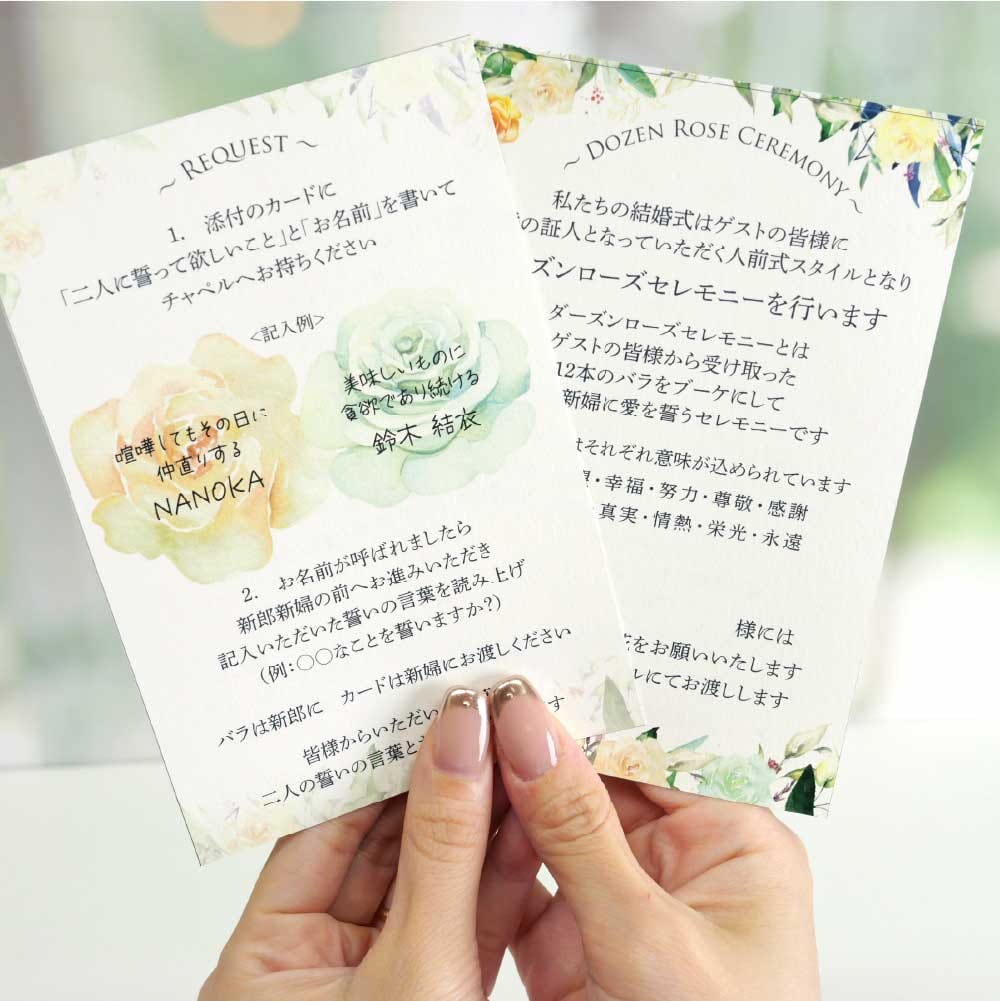 ～ REQUEST ～
1. 添付のカードに
「二人に誓って欲しいこと」と「お名前」を書いて
チャペルへお持ちください
<記入例>
喧嘩してもその日に
仲直りする
NANOKA
美味しいものに
貪欲であり続ける
鈴木 結衣
2. お名前が呼ばれましたら
新郎新婦の前へお進みいただき
記入いただいた誓いの言葉を読み上げ
(例:○○なことを誓いますか?)
バラは新郎に カードは新婦にお渡しください
皆様からいただい
す
二人の誓いの言葉と
～ DOZEN ROSE CEREMONY ～
私たちの結婚式はゲストの皆様に
の証人となっていただく人前式スタイルとなり
ズンローズセレモニーを行います
ダーズンローズセレモニーとは
ゲストの皆様から受け取った
12本のバラをブーケにして
新婦に愛を誓うセレモニーです
はそれぞれ意味が込められています
・幸福・努力・尊敬・感謝
真実・情熱・栄光・永遠
様には
をお願いいたします
ルにてお渡しします